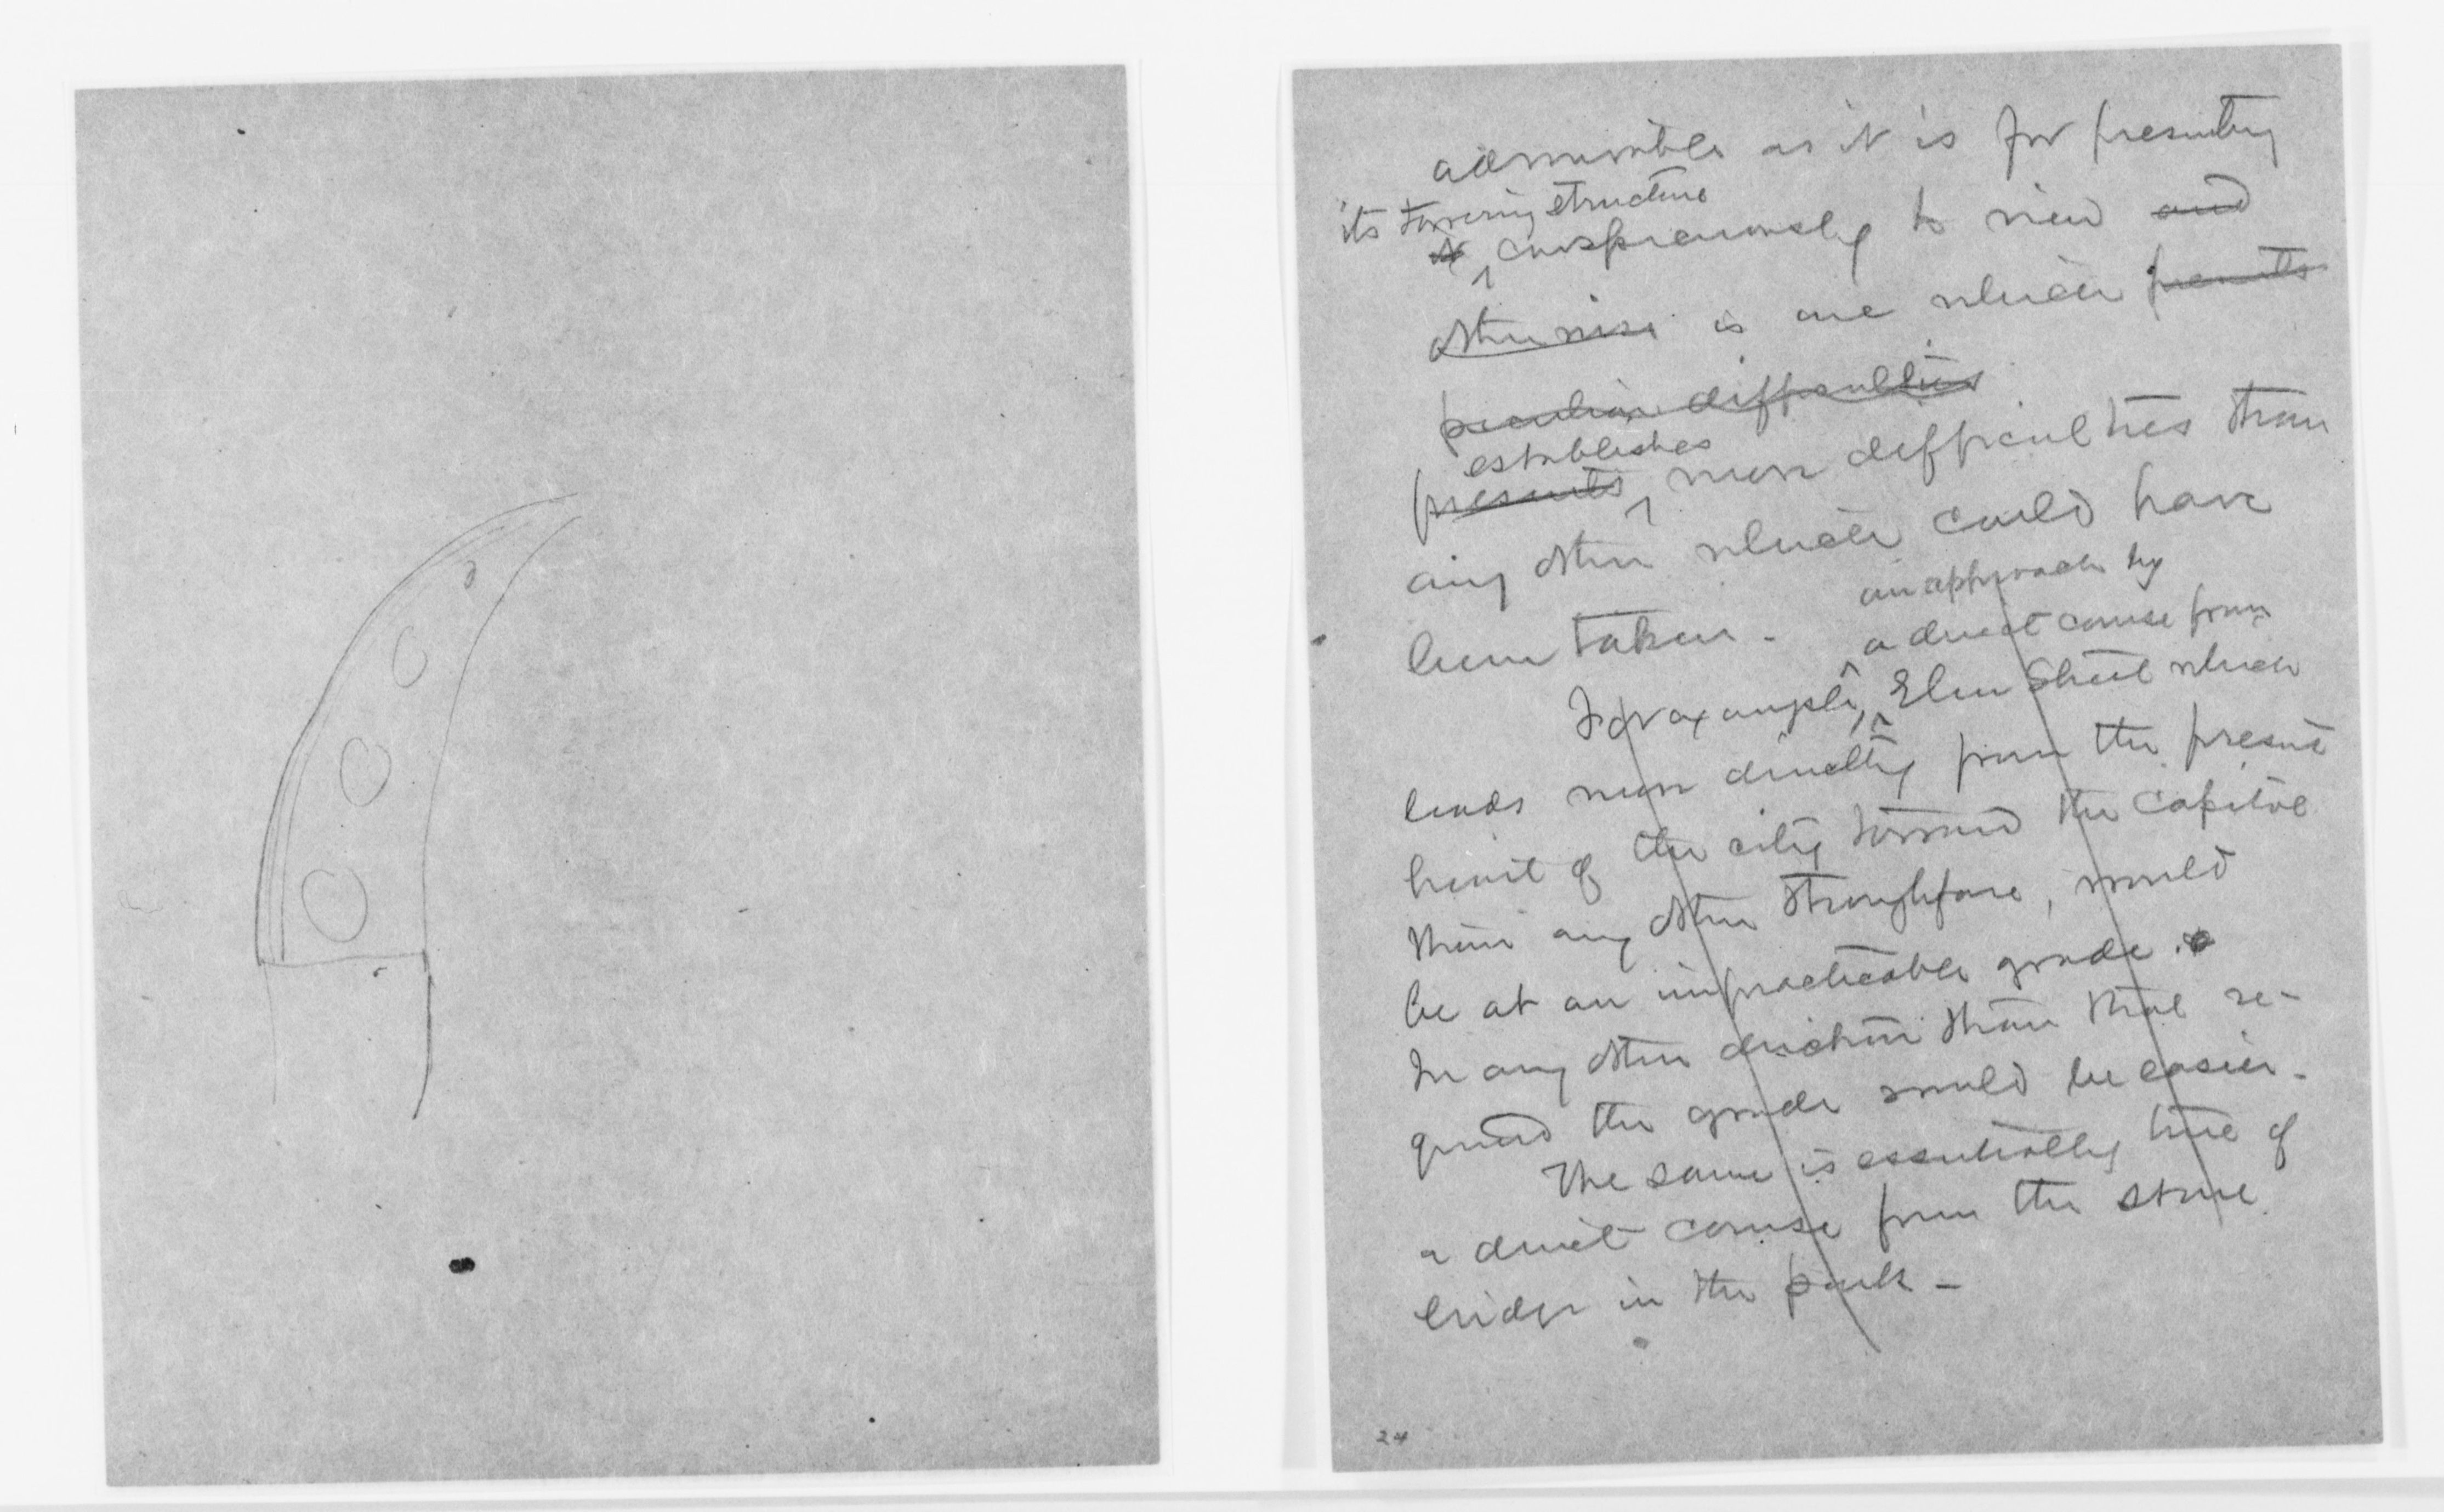 admirable as it is for presenting
its towering structure
it conspicuously to view and
otherwise is one which presents
peculiar difficulties
establishes
presents more difficulties than
any other which could have
been taken -
an approach by
a direct course from
For example, Elm Street which
leads more directly from the present
heart of the city toward the Capitol
than any other thoroughfare, would
be at an impracticable grade.
In any other direction than that re-
quired the grade would be easier -
The same is essentially true of
a direct course from the stone
bridge in the park -
24